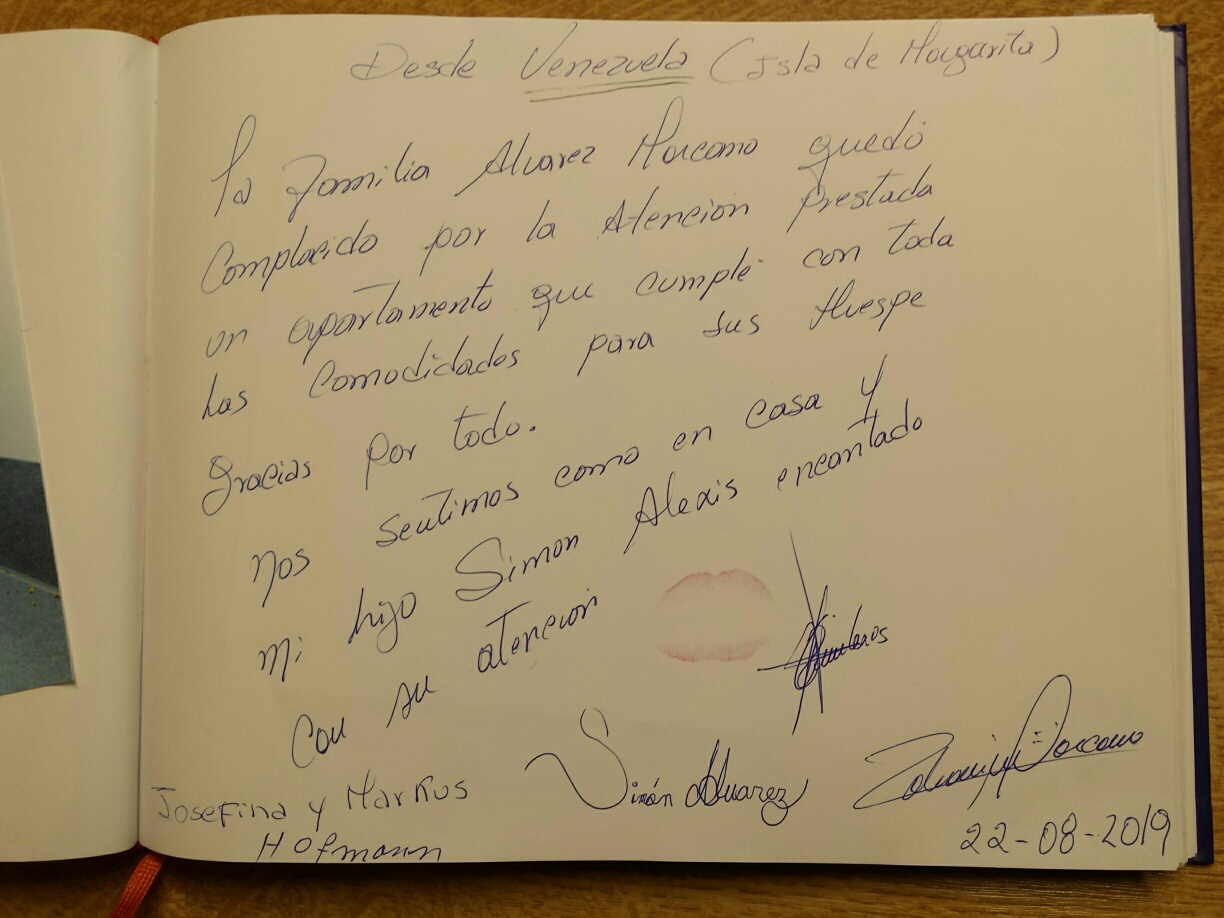 Desde Venezuela (Isla de Margarita)
La Familia Alvarez Marcano quedó
Complacido por la Atencion Prestada
un apartamento que cumple con toda
las Comodidados para sus Huespe
gracias por todo.
nos sentimos como en casa y
mi hijo Simon Alexis encantado
Con su atencion
Simón Alvarez
Marcano
Josefina y Markus
Hofmann
22-08-2019